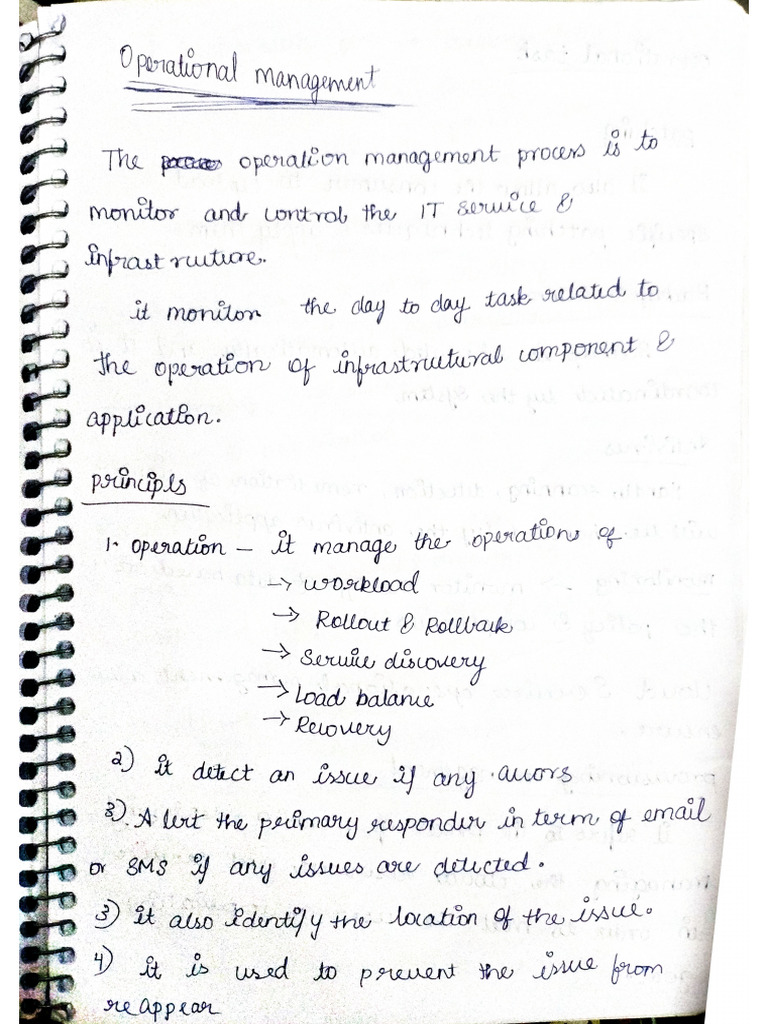 Operational management
The operation management process is to
monitor and control the IT service &
infrastructure.
it monitor the day to day task related to
the operation of infrastructural component &
application.
principls
1. operation – it manage the operations of
→ workload
→ Rollout & Rollback
→ Service discovery
→ Load balance
→ Recovery
2) it detect an issue if any
3) Alert the primary responder in term of email
or SMS if any issues are detected.
3) it also identify the location of the issue.
4) it is used to prevent the issue from
reAppear